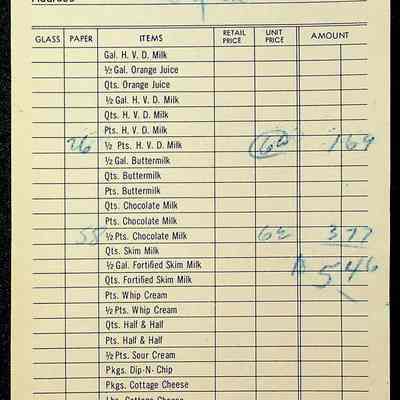 GLASS PAPER ITEMS RETAIL PRICE UNIT PRICE AMOUNT
Gal. H. V. D. Milk
½ Gal. Orange Juice
Qts. Orange Juice
½ Gal. H. V. D. Milk
Qts. H. V. D. Milk
Pts. H. V. D. Milk
26 ½ Pts. H. V. D. Milk 169
½ Gal. Buttermilk
Qts. Buttermilk
Pts. Buttermilk
Qts. Chocolate Milk
Pts. Chocolate Milk
58 ½ Pts. Chocolate Milk 377
Qts. Skim Milk
½ Gal. Fortified Skim Milk 546
Qts. Fortified Skim Milk
Pts. Whip Cream
½ Pts. Whip Cream
Qts. Half & Half
Pts. Half & Half
½ Pts. Sour Cream
Pkgs. Dip-N-Chip
Pkgs. Cottage Cheese